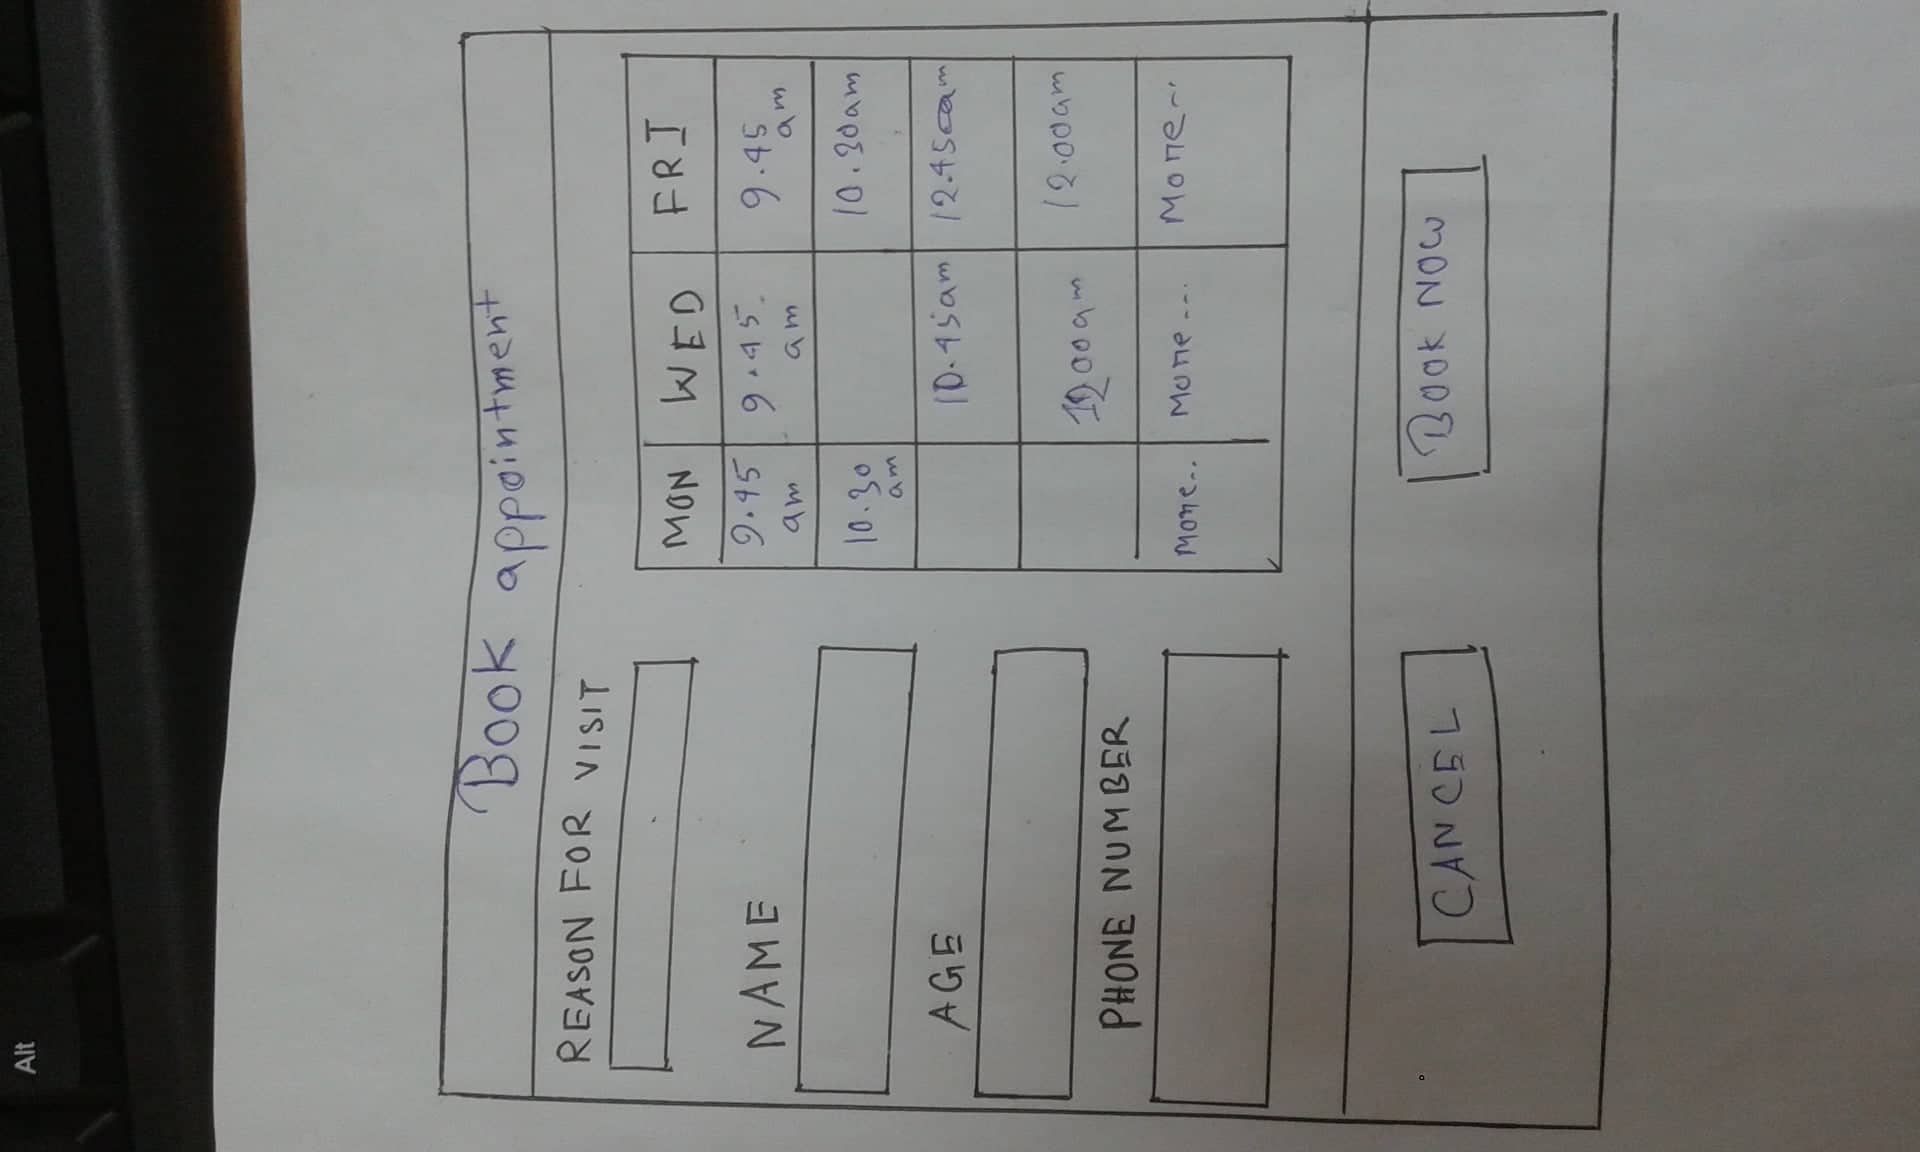 Book appointment
REASON FOR VISIT
NAME
AGE
PHONE NUMBER
MON WED FRI
9.45 am 9.45 am 9.45 am
10.30 am 10.30am
10.45am 12.45am
1200am 12.00am
More.. More... More...
CANCEL BOOK NOW
Alt